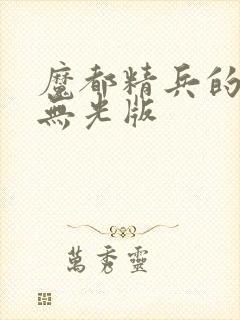 魔都精兵的
無光版
萬秀靈